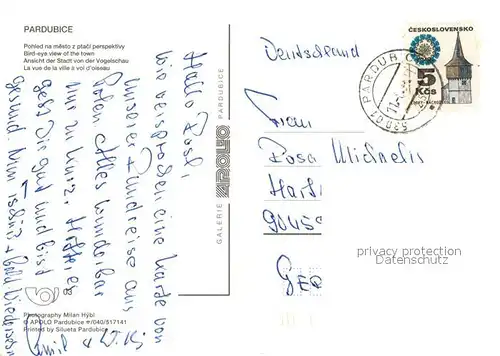 PARDUBICE
Pohled na město z ptačí perspektivy
Bird-eye view of the town
Ansicht der Stadt von der Vogelschau
La vue de la ville à vol d'oiseau
Hallo Rosl,
wie versprochen eine Karte von
unserer Rundreise aus
Polen. Alles wunderbar
nur zu kurz. Hoffe es
geht Dir gut und bist
gesund. Nun
Photography Milan Hýbl
© APOLO Pardubice #/040/517141
Printed by Silueta Pardubice
GALERIE APOLO PARDUBICE
ČESKOSLOVENSKO
5
Kčs
PARDUBICE
530 01
Deutschland
Frau
Rosa Michaelis
9045
GER
privacy protection
Datenschutz